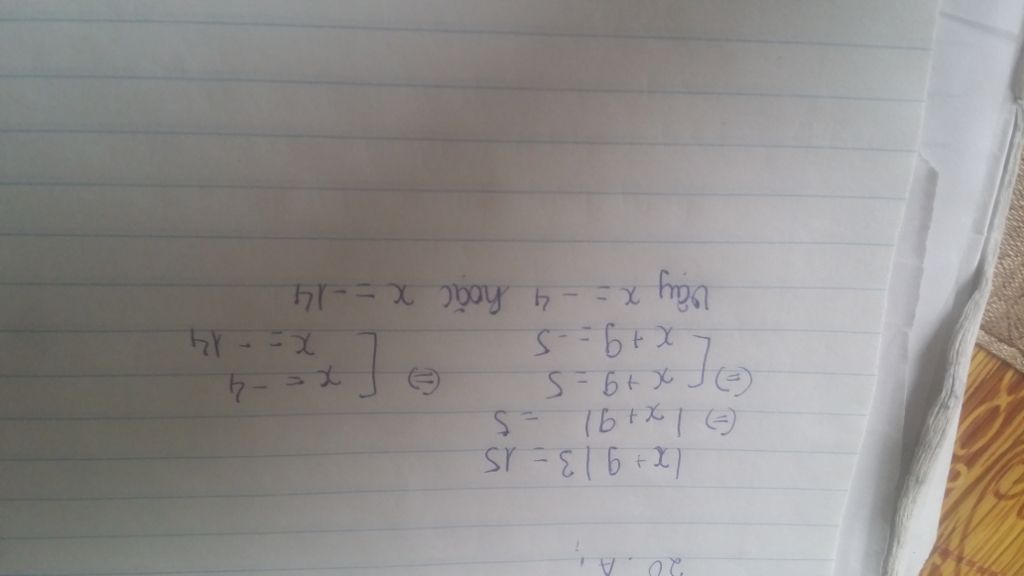 20. A,
|x+9|3 = 15
(=) |x+9| = 5
(=) [ x+9 = 5 (=) [ x = -4
x+9 = -5 x = -14
Vậy x = -4 hoặc x = -14